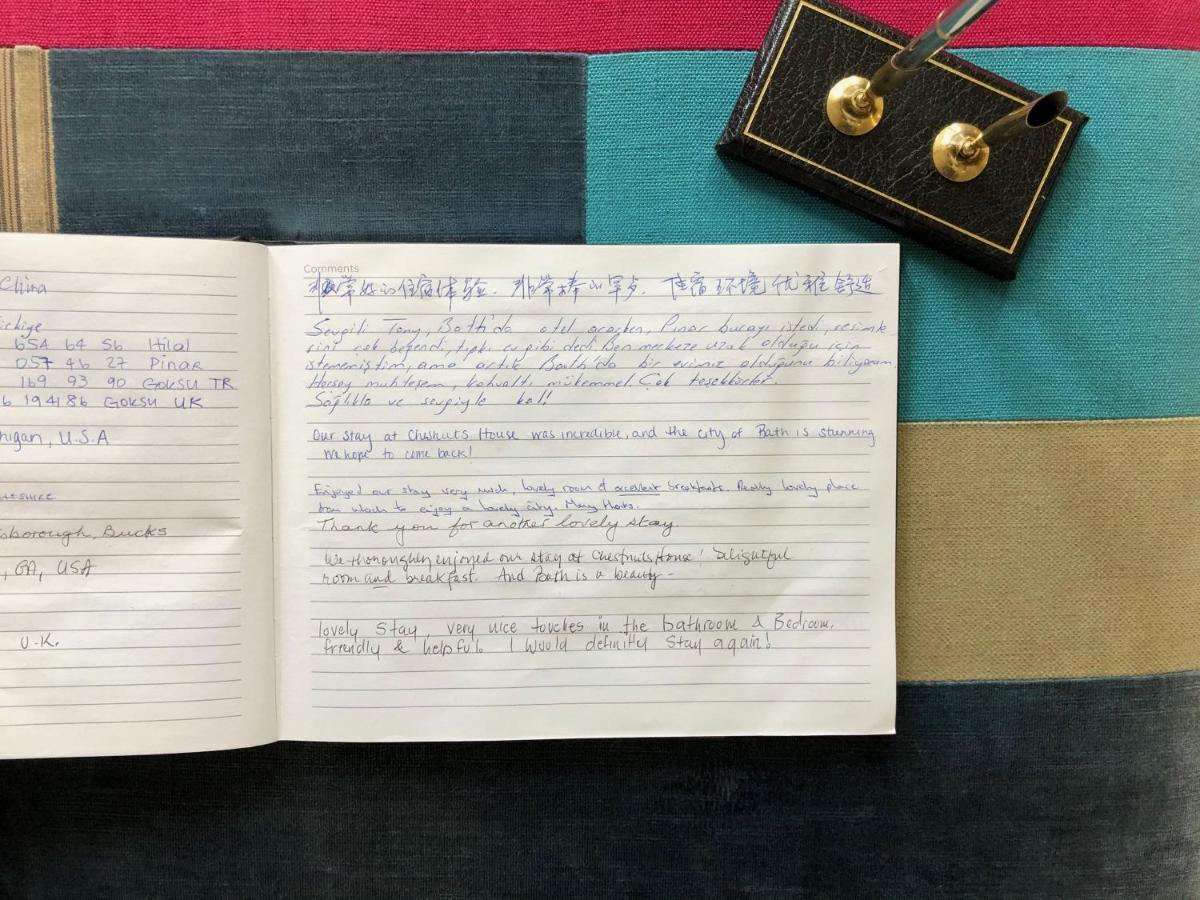 China
654 64 56 Hilal
057 46 27 Pinar
169 93 90 GOKSU TR
6 194186 GOKSU UK
higan, U.S.A
sborough, Bucks
, GA, USA
U.K.
Comments
非常好的住宿体验. 非常棒的早点. 住宿环境优雅舒适
Sevgili Tony, Bath'da otel ararken, Pınar burayı istedi, resimle
rini çok beğendi, tıpkı ev gibi dedi. Ben merkeze uzak olduğu için
istememiştim, ama artık Bath'da bir evimiz olduğunu biliyorum
Herşey muhteşem, kahvaltı mükemmel. Çok teşekkürler.
Sağlıkla ve sevgiyle kal!
Our stay at Chesnuts House was incredible, and the city of Bath is stunning
We hope to come back!
Enjoyed our stay very much, lovely room & excellent breakfasts. Really lovely place
from which to enjoy a lovely city. Many thanks.
Thank you for another lovely stay.
We thoroughly enjoyed our stay at Chestnuts House! Delightful
room and breakfast. And Bath is a beauty -
lovely stay, very nice touches in the bathroom & Bedroom.
friendly & helpful. I would definitly stay again!